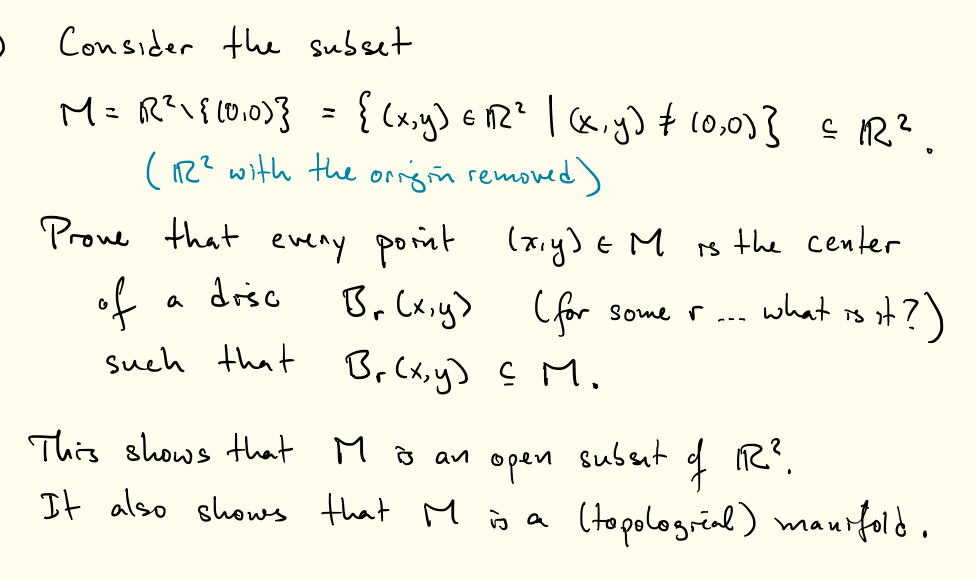 ) Consider the subset
M = ℝ²\{(0,0)} = {(x,y) ∈ ℝ² | (x,y) ≠ (0,0)} ⊆ ℝ².
(ℝ² with the origin removed)
Prove that every point (x,y) ∈ M is the center
of a disc Bᵣ(x,y) (for some r ... what is it?)
such that Bᵣ(x,y) ⊆ M.
This shows that M is an open subset of ℝ².
It also shows that M is a (topological) manifold.